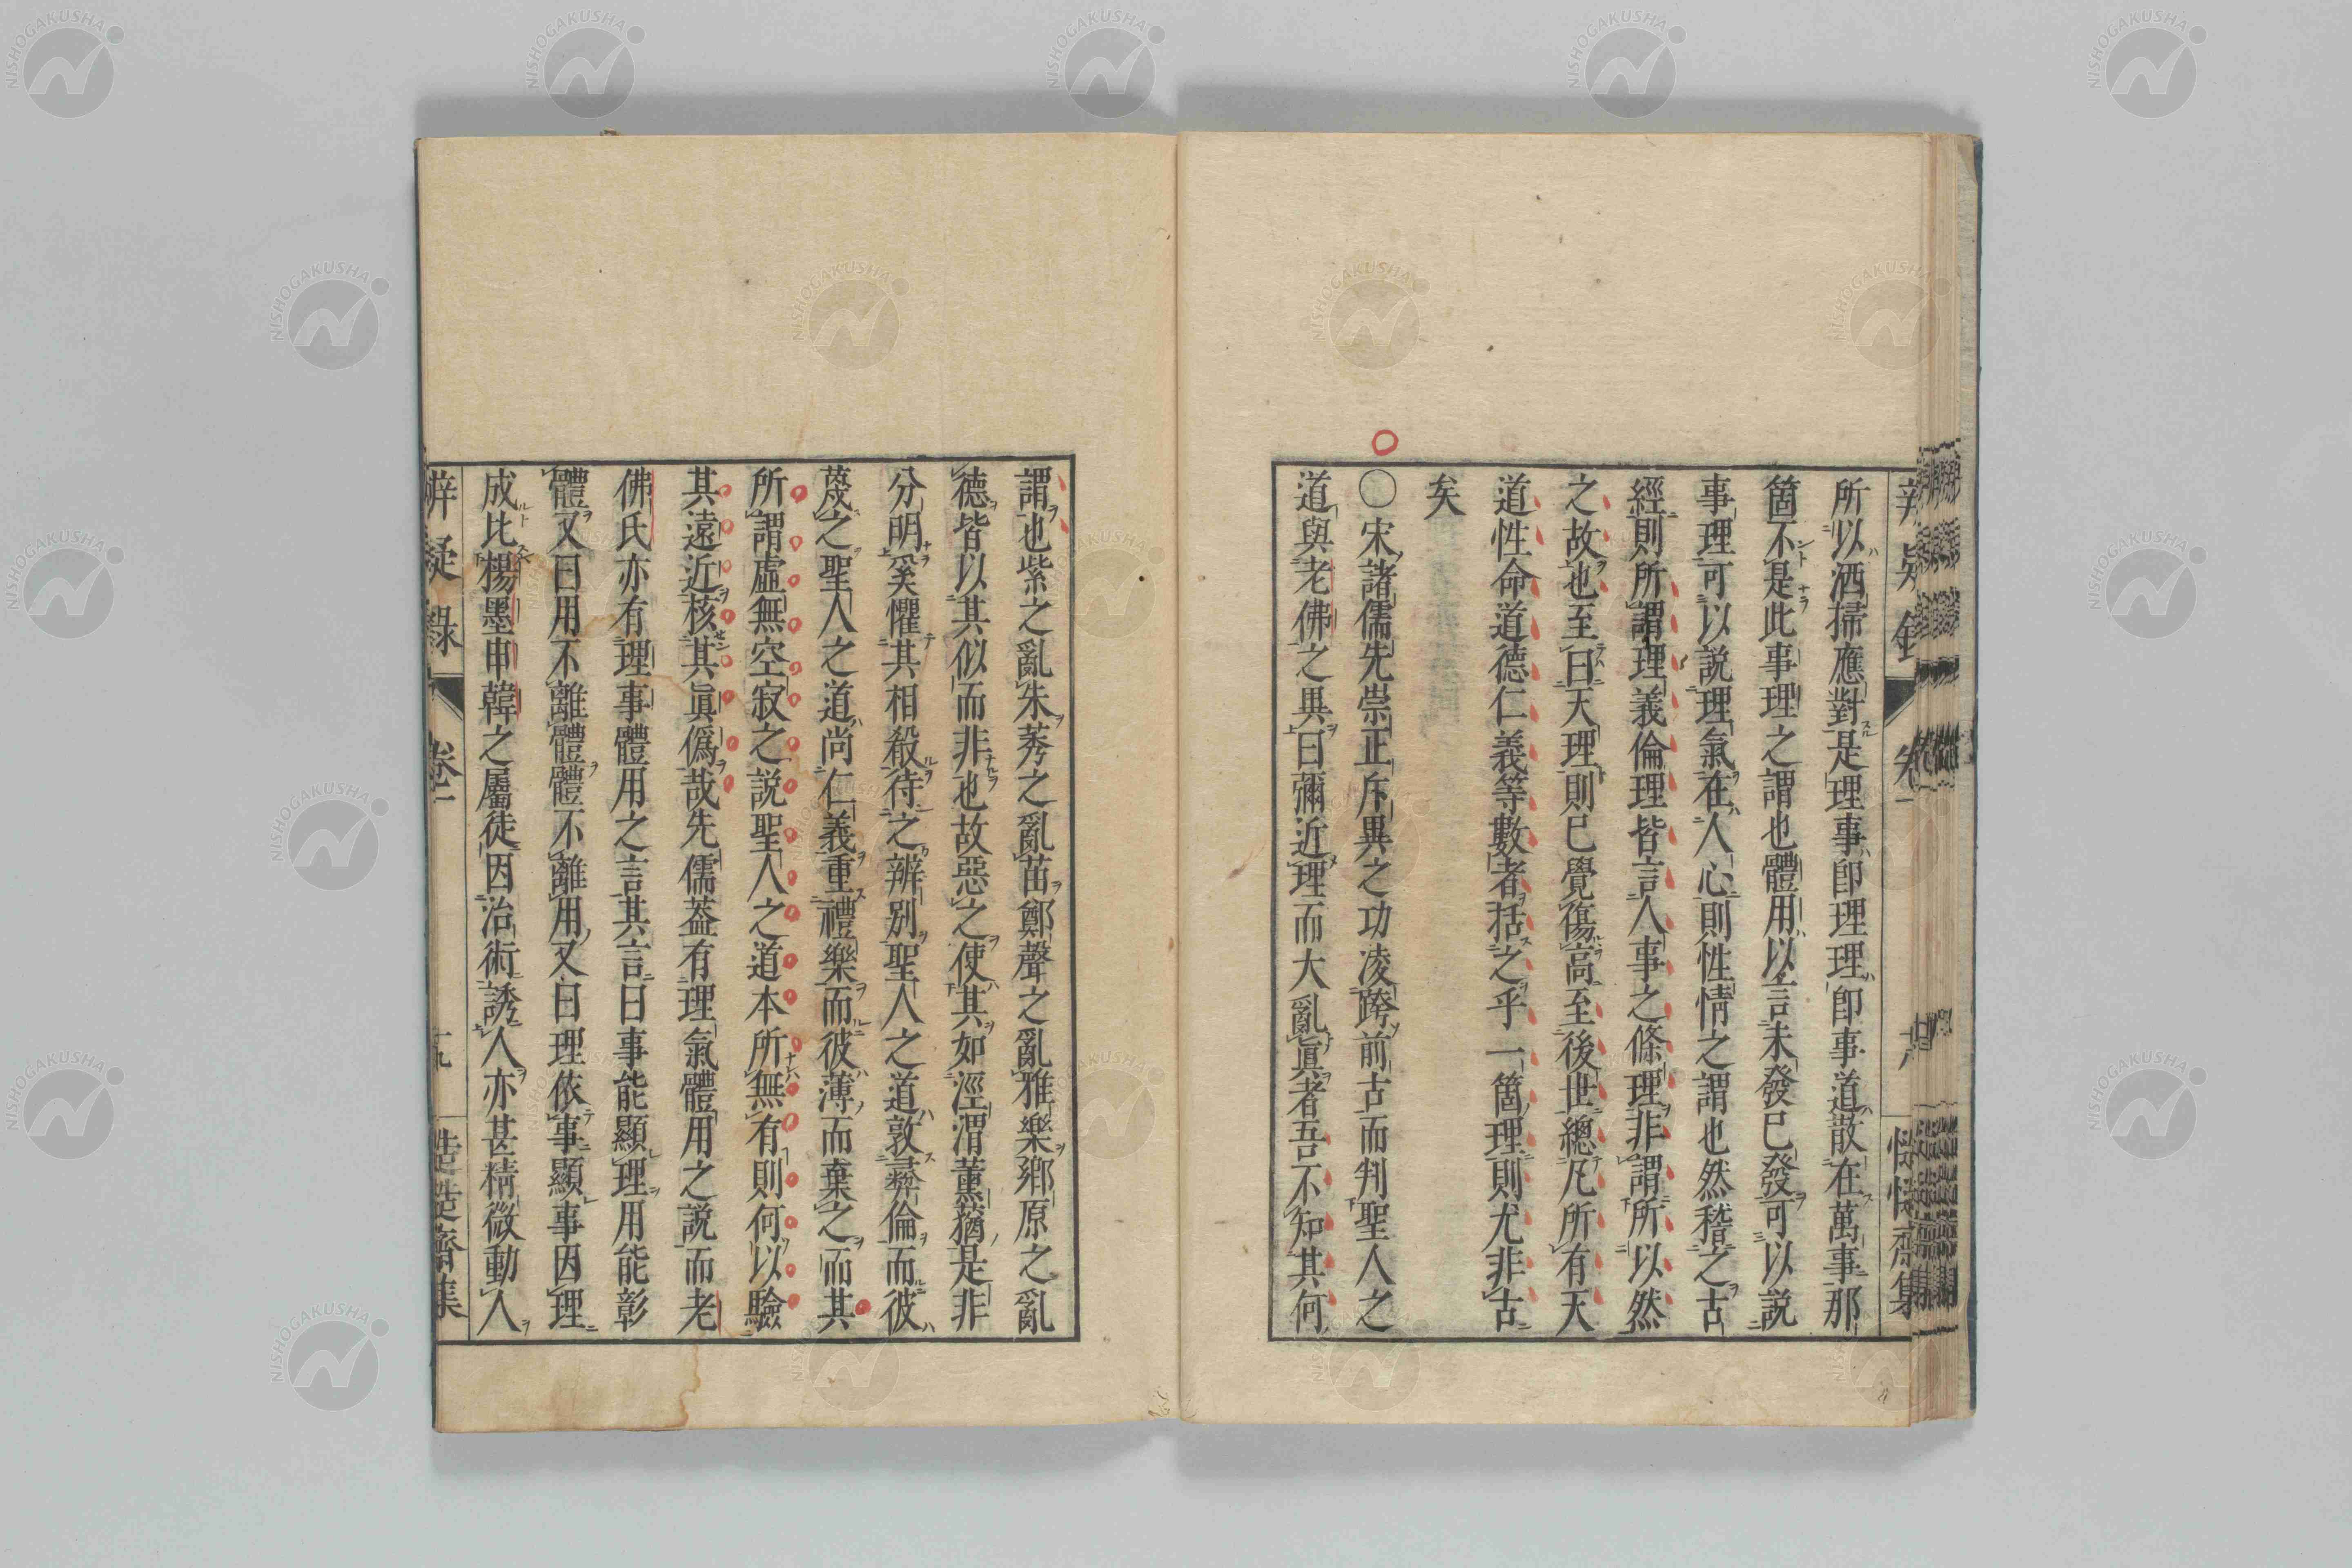 所以洒掃應對是理事即理理即事道散在萬事那
箇不是此事理之謂也體用以言未發已發可以説
事理可以説理氣在人心則性情之謂也然稽之古
經則所謂理義倫理皆言人事之條理非謂所以然
之故也至曰天理則已覺傷高至後世總凡所有天
道性命道德仁義等數者括之乎一箇理則尤非古
矣
〇宋諸儒先崇正斥異之功凌跨前古而判聖人之
道與老佛之異曰彌近理而大亂眞者吾不知其何
謂也紫之亂朱莠之亂苗鄭聲之亂雅樂鄕原之亂
德皆以其似而非也故惡之使其如涇渭薫蕕是非
分明奚懼其相殺待之辨別聖人之道敦彝倫而彼
蔑之聖人之道尚仁義重禮樂而彼薄而棄之而其
所謂虛無空寂之説聖人之道本所無有則何以驗
其遠近核其眞僞哉先儒葢有理氣體用之説而老
佛氏亦有理事體用之言其言曰事能顯理用能彰
體又曰用不離體體不離用又曰理依事顯事因理
成比楊墨申韓之屬徒因治術誘人亦甚精微動人
辨疑錄
卷二
慥慥齋集
NISHOGAKUSHA